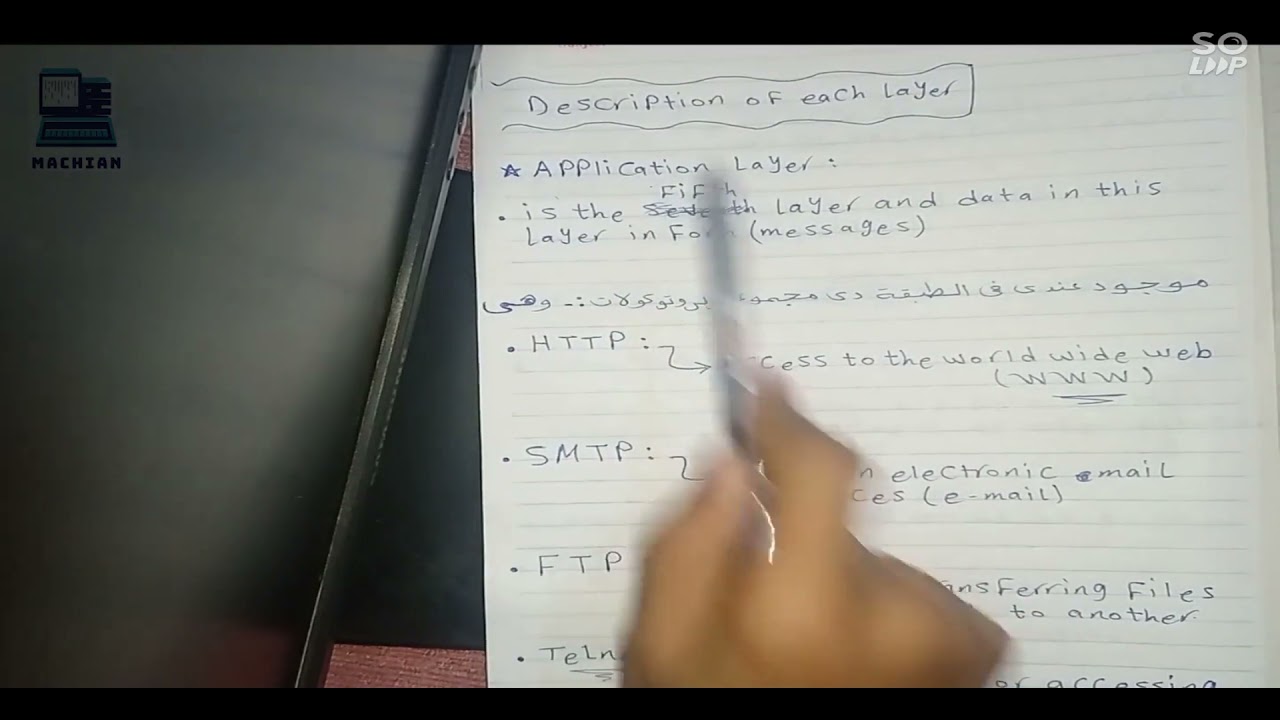 SO
LOOP
MACHIAN
Description of each Layer
★ Application Layer :
Fifth
• is the layer and data in this
Layer in Form (messages)
موجود عندى فى الطبقة دى مجموعة بروتوكولات :- وهى
• HTTP : access to the world wide web
(WWW)
• SMTP : electronic email
(e-mail)
• FTP transferring Files
to another.
• Teln
accessing